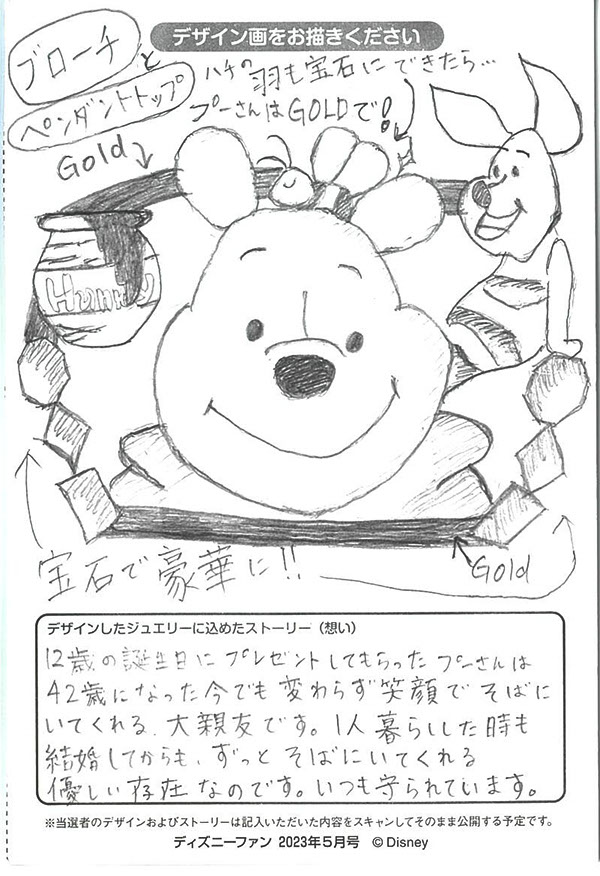 デザイン画をお描きください
ブローチと
ペンダントトップ
ハチの羽も宝石にできたら…
プーさんはGOLDで!
Gold
Hunny
宝石で豪華に!!
Gold
デザインしたジュエリーに込めたストーリー(想い)
12歳の誕生日にプレゼントしてもらったプーさんは
42歳になった今でも変わらず笑顔でそばに
いてくれる、大親友です。1人暮らしした時も
結婚してからも、ずっとそばにいてくれる
優しい存在なのです。いつも守られています。
※当選者のデザインおよびストーリーは記入いただいた内容をスキャンしてそのまま公開する予定です。
ディズニーファン 2023年5月号 ©Disney